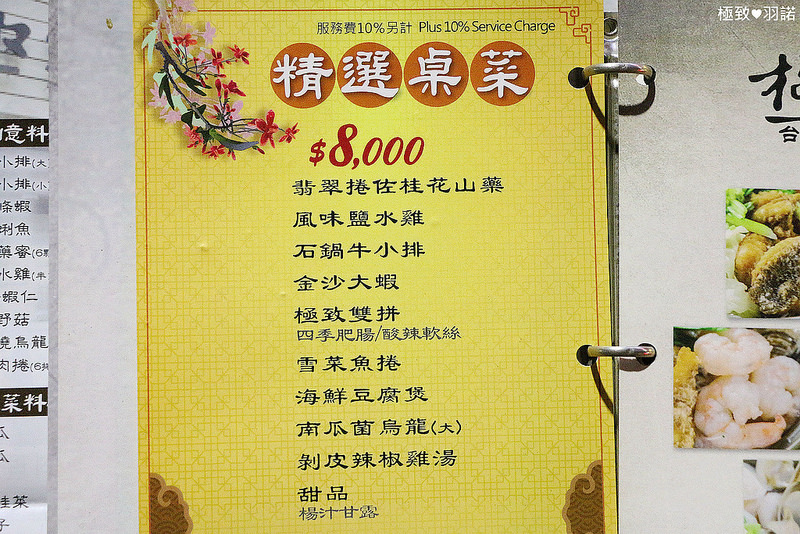 極致♥羽諾
服務費10%另計 Plus 10% Service Charge
精選桌菜
$8,000
翡翠捲佐桂花山藥
風味鹽水雞
石鍋牛小排
金沙大蝦
極致雙拼
四季肥腸/酸辣軟絲
雪菜魚捲
海鮮豆腐煲
南瓜菌烏龍(大)
剝皮辣椒雞湯
甜品
楊汁甘露
意料
小排(大
小排(小
條蝦
蜊魚
藥蜜(6
水雞(半
蝦仁
野菇
燒烏龍
肉捲(6
菜料
瓜
瓜
桂菜
子
台